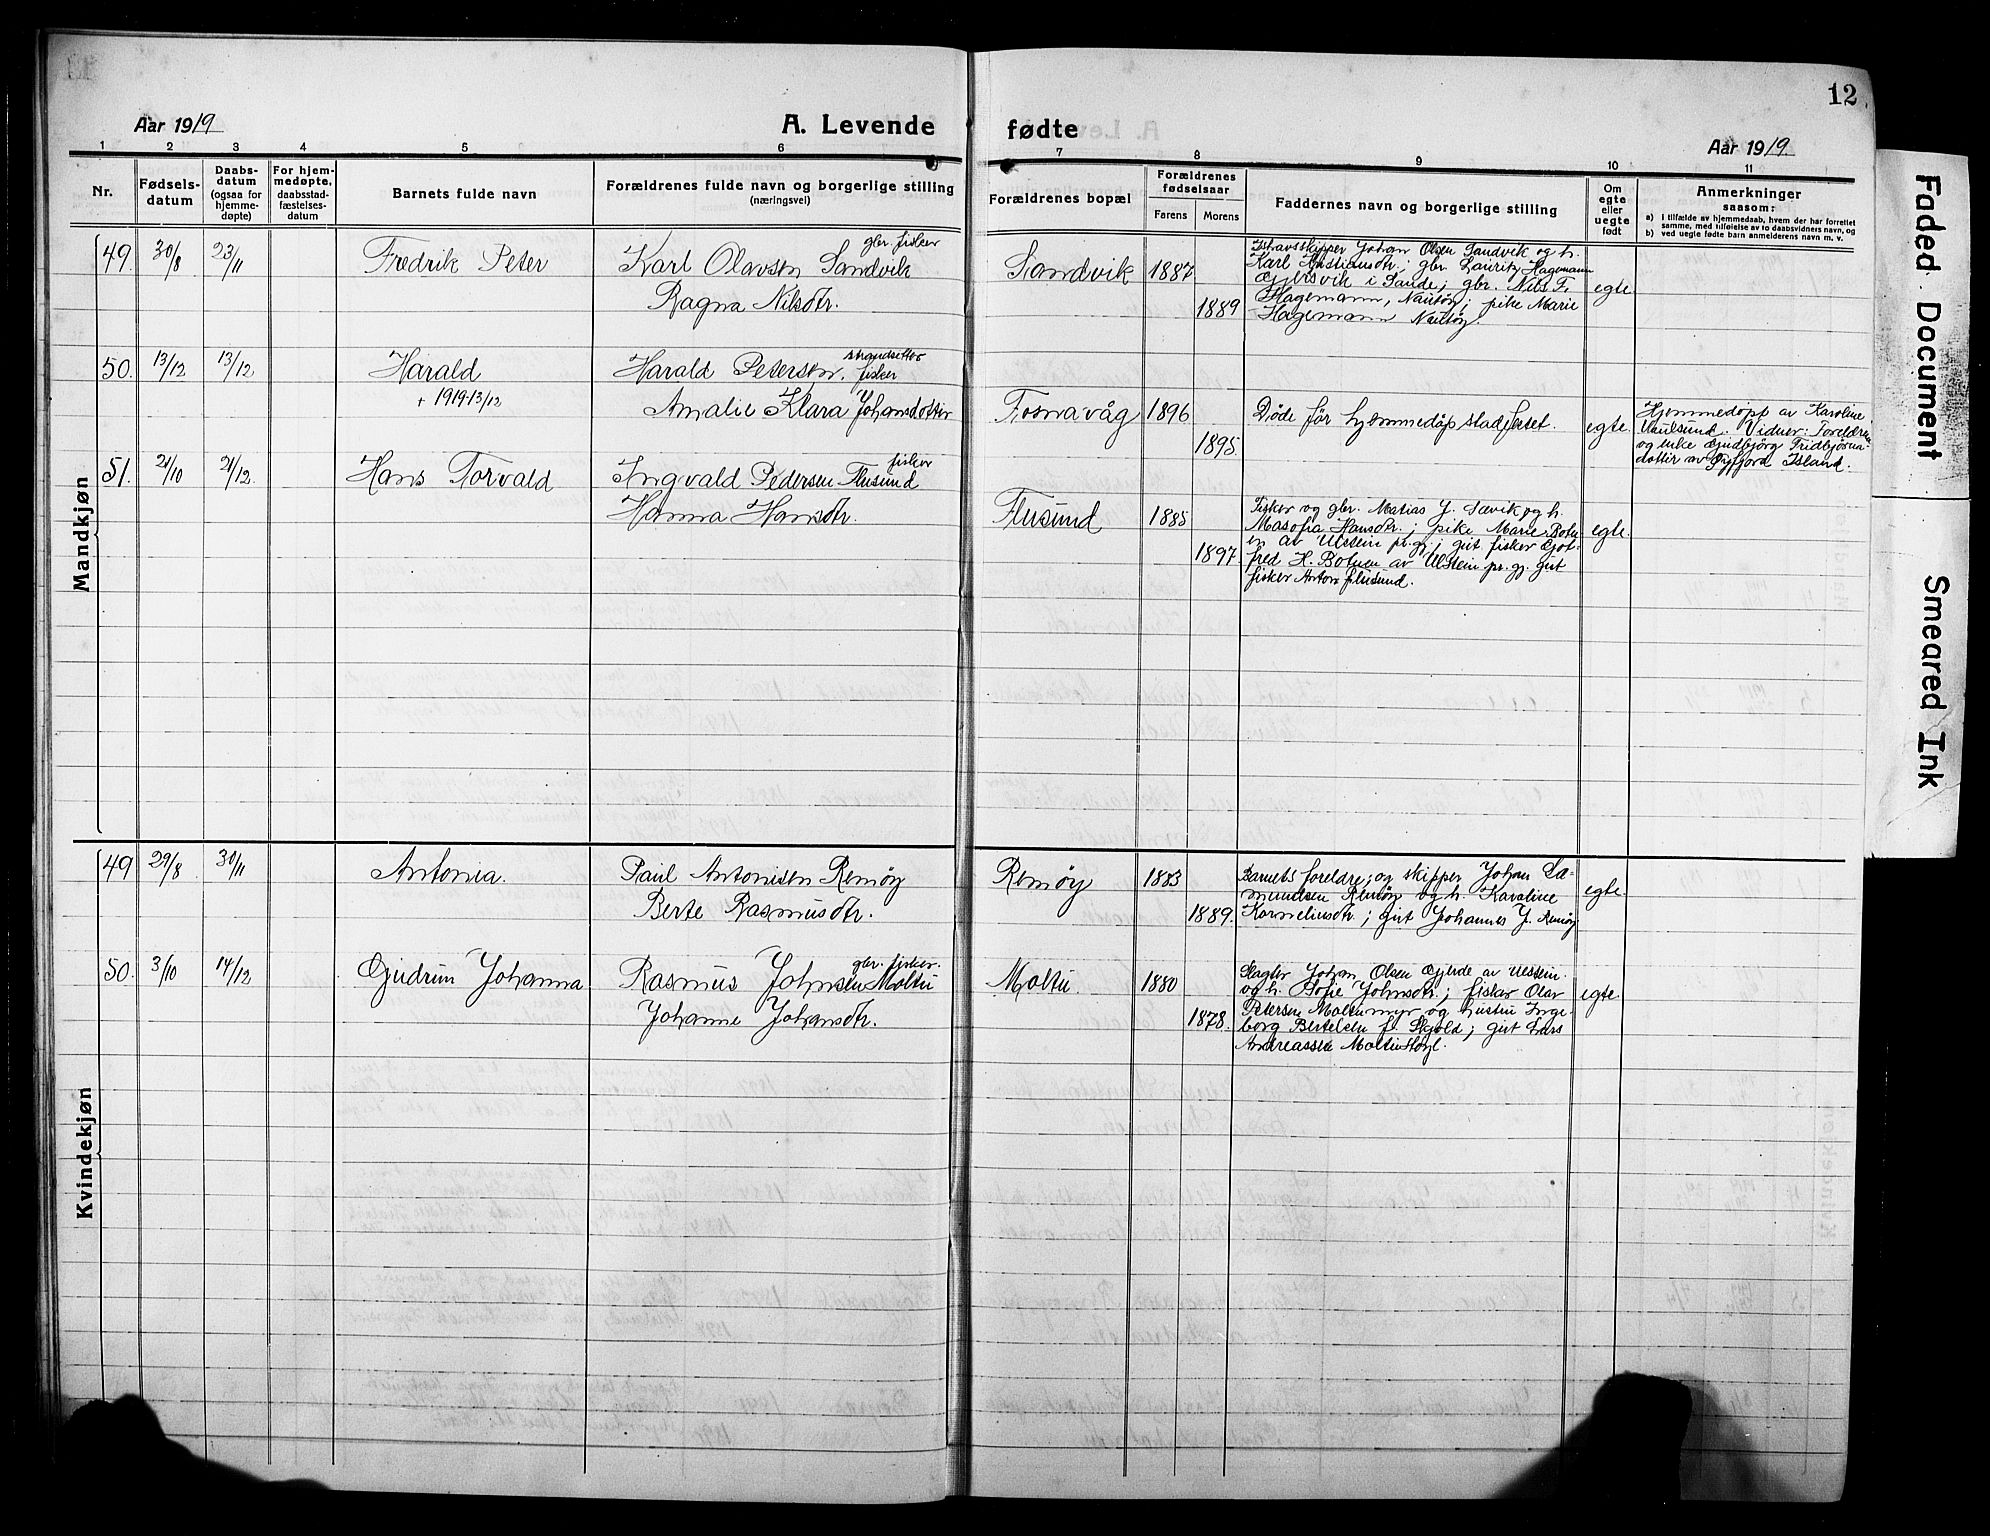 12
Aar 1919
A. Levende
fødte
Aar 1919.
1 2 3 4 5 6 7 8 9 10 11
Nr.
Fødsels-
datum
Daabs-
datum
(ogsaa for
hjemme-
døpte)
For hjem-
medøpte,
daabsstad-
fæstelses-
datum
Barnets fulde navn
Forældrenes fulde navn og borgerlige stilling
(næringsvei)
Forældrenes bopæl
Forældrenes
fødselsaar
Farens
Morens
Faddernes navn og borgerlige stilling
Om
egte
eller
uegte
født
Anmerkninger
saasom:
a) i tilfælde av hjemmedaab, hvem der har forrettet
samme, med tilføielse av to daabsvidners navn, og
b) ved uegte fødte barn anmelderens navn m. v.
Mandkjøn
49. 30/8 23/11 Fredrik Peter
gbr. fisker
Karl Olavsen Sandvik
Ragna Nilsdtr.
Sandvik 1887
1889
Ishavsskipper Johan Olsen Sandvik og h.
Karl Kristiansdtr.; gbr. Lauritz Hagemann
Gjersvik i Sande; gbr. Nils F.
Hagemann, Nautøy; pike Marie
Hagemann Nautøy.
egte.
50. 13/12 13/12 Harald
+ 1919-13/12
strandsitter
Harald Petersen, fisker
Amalie Klara Johansdotter
Fosnavåg 1896
1895.
Døde før hjemmedåp stadfestet.
egte.
Hjemmedøpt av Karoline
Vaulsund. Vidner: Foreldrene
og enke Gudbjörg Fridbjörna
dottir av Øyfjord Island.
51. 21/10 21/12. Hans Torvald
fisker
Ingvald Pedersen Flusund
Hanna Hansdtr.
Flusund 1885
1897.
Fisker og gbr. Matias J. Sævik og h.
Masofia Hansdtr.; pike Marie Botn
en av Ulstein pr.gj.; gut fisker Got-
fred H. Botnen av Ulstein pr. gj. gut
fisker Anton Flusund.
egte.
Kvindekjøn
49 29/8 30/11 Antonia.
Paul Antonisen Remøy
Berte Rasmusdtr.
Remøy 1883
1889.
Barnets foreldre; og skipper Johan Sæ-
mundsen Remøy og h. Karoline
Korneliusdtr.; gut Johannes J. Remøy
egte.
50. 3/10 14/12 Gudrun Johanna
gbr. fisker.
Rasmus Johnsen Moltu
Johanne Johansdtr.
Moltu. 1880
1878.
Slagter Johan Olsen Gjerde av Ulstein.
og h. Sofie Johnsdtr.; fisker Olav
Petersen Moltumyr og hustru Inge-
borg Bertelsen f. Skjold; gut Lars
Andreassen Moltu
egte.
Faded Document
Smeared Ink